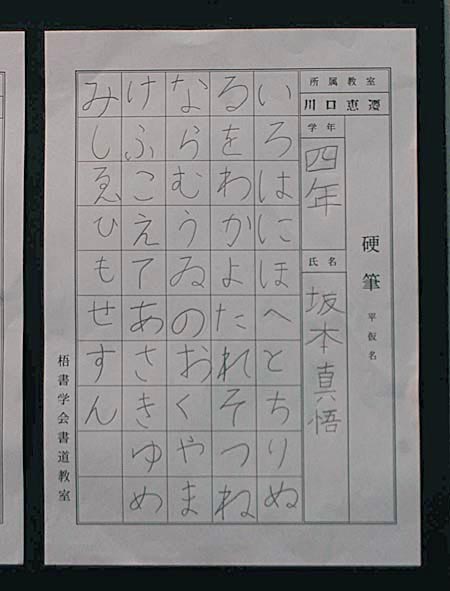 硬筆 平仮名
所属教室
川口恵遷
学年
四年
氏名
坂本真悟
いろはにほへとちりぬ
るをわかよたれそつね
ならむうゐのおくやま
けふこえてあさきゆめ
みしゑひもせすん
梧書学会書道教室